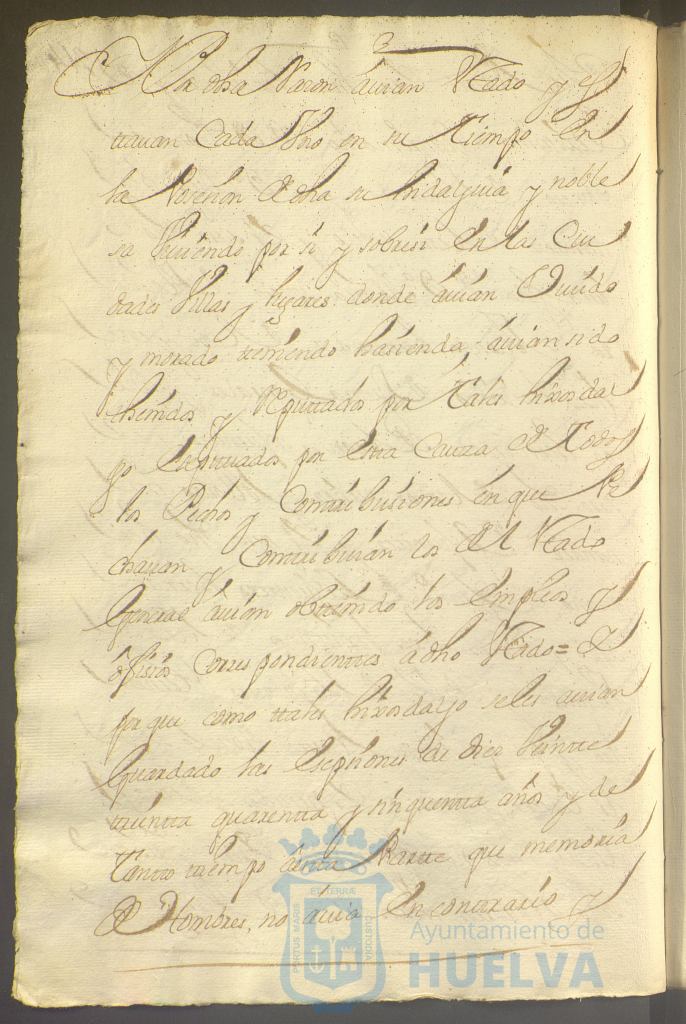 Por dha Varon avian Estado y es
tavan Cada Vno en su tiempo En
la Posesion de dha su hidalguia y noble
sa viviendo por si y sobresi En las Ciu
dades Villas y lugares donde avian Vivido
y morado teniendo hasienda avian sido
thenidos y Reputados por tales hixosdal
go Exseptuados por Esta Causa de todos
los Pechos y Contribusiones en que Pe
chavan y Contribuian los del Estado
General avian obtenido los Empleos y
ofisios Correspondientes a dho Estado= Y
porque como tales hixosdalgo se les avian
Guardado las Esepsiones de dies Veinte
treinta quarenta y sinquenta años y de
tanto tiempo a esta Parte que memoria
de Hombres, no avia En contrario y
PORTUS MARIS
ET TERRÆ
CUSTODIA
Ayuntamiento de
HUELVA